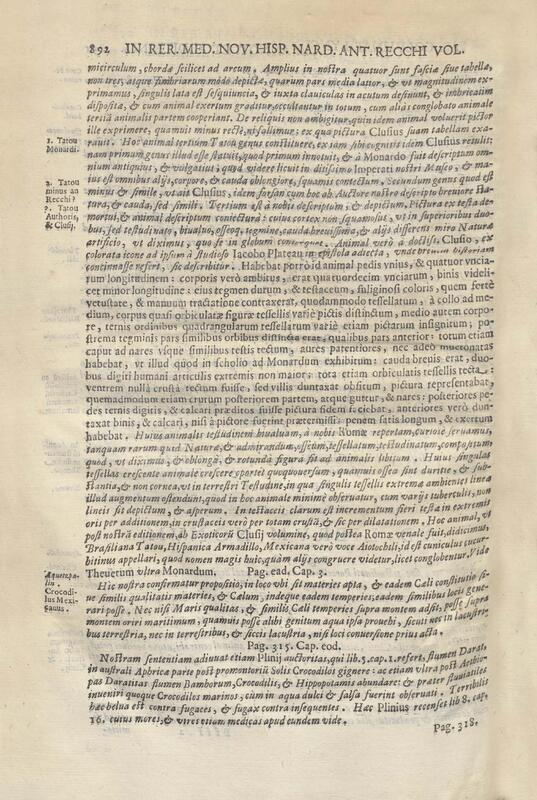 892 IN RER. MED. NOV. HISP. NARD. ANT. RECCHI VOL.
micirculum, chordæ scilicet ad arcum. Amplius in nostra quatuor sunt fasciæ siue tabellæ,
non tres, atque fimbriarum modo depictæ, quarum pars media latior, & vt magnitudinem ex-
primamus, singulis lata est sesquiuncia, & iuxta clauiculas in acutum desinunt, & imbricatim
disposita, & cum animal exertum graditur, occultantur in totum, cum aliàs conglobato animale
tertià animalis partem cooperiant. De reliquis non ambigitur, quin idem animal voluerit pictor
ille exprimere, quamuis minus rectè, ni fallimur: ex qua pictura Clusius suam tabellam exa-
rauit. Hoc animal tertium Tatou genus constituere, ex iam sibi cognitis idem Clusius retulit:
nam primum genus illud esse statuit, quod primum innotuit, & à Monardo fuit descriptum om-
nium antiquius, & vulgatius; quod videre licuit in ditissimo Imperati nostri Museo, & ma-
ius est omnibus alijs, corpore, & cauda oblongiore, squamis contectum. Secundum genus quod est
minus & simile, vtait Clusius, idem forsan cum hoc ab Auctore nostro descripto breuiore sta-
tura, & cauda, sed simili. Tertium est à nobis descriptum, & depictum. Pictura ex testa de-
mortui, & animal descriptum coniectura: cuius cortex non squamosus, vt in superioribus duo-
bus, sed testudinato, biualuo, osseoq. tegmine, cauda breuissima, & alijs differens miro Naturæ
artificio, vt diximus, quo se in globum conuoluit. Animal verò a doctiss. Clusio, ex
colorata icone ad ipsum à studioso Iacobo Plateau in epistola adiecta, vnde breuem historiam
concinnasse refert, sic describitur. Habebat porrò id animal pedis vnius, & quatuor vncia-
rum longitudinem: corporis verò ambitus, erat quatuordecim vnciarum, binis videli-
cet minor longitudine: eius tegmen durum, & testaceum, fuliginosi coloris, quem fertè
vetustate, & manuum tractatione contraxerat, quodammodo tessellatum, à collo ad me-
dium, corpus quasi orbiculatæ figuræ tessellis variè pictis distinctum, medio autem corpo-
re, ternis ordinibus quadrangularum tessellarum variè etiam pictarum insignitum; po-
strema tegminis pars similibus orbibus distincta erat, qualibus pars anterior: totum etiam
caput ad nares vsque similibus testis tectum, aures patentiores, nec adeò mucronatas
habebat, vt illud quod in scholio ad Monardum exhibitum: cauda breuis erat, duo-
bus digiti humani articulis extremis non maior: tota etiam orbiculatis tessellis tecta:
ventrem nullà crustà tectum fuisse, sed villis duntaxat obsitum, pictura repræsentabat,
quemadmodum etiam crurum posteriorem partem, atque guttur, & nares: posteriores pe-
des ternis digitis, & calcari præditos fuisse pictura fidem faciebat, anteriores verò dun-
taxat binis, & calcari, nisi à pictore fuerint prætermissi: penem satis longum, & exertum
habebat. Huius animalis testudineim biualuam, à nobis Romæ repertam, curiosè seruamus,
tanquam rarum quid Naturæ, & admirandum, osseum, tessellatum, testudinatum, compositum
quod, vt diximus, & oblongà, & rotundà figura fit ad animalis libitum. Huius singulas
tessellas crescente animale crescere oportet quoquouersum, quamuis ossea sint duritie, & sub-
stantia, & non cornea, vt in terrestri Testudine, in qua singulis tessellis extremæ ambientes lineæ
illud augmentum ostendunt, quod in hoc animale minimè obseruatur, cum varijs tuberculis, non
lineis sit depictum, & asperum. In testaceis clarum est incrementum fieri testa in extremis
oris per additionem, in crustaceis verò per totam crustà, & sic per dilatationem. Hoc animal, vt
post nostrà editionem, ab Exoticorù Clusij volumine, quod postea Romæ venale fuit, didicimus,
Brasiliana Tatou, Hispanica Armadillo, Mexicana verò voce Aiotochli, id est cuniculus cucur-
bitinus appellari, quod nomen magis huic, quàm alijs congruere videtur, licet conglobentur. Vide
Theuetum vltra Monardum. Pag. ead. Cap. 3.
Hic nostra confirmatur propositio, in loco vbi sit materies apta, & eadem Cæli constitutio si-
ue similis qualitatis materies, & Cælum, indeque eadem temperies, eadem similibus locis gene-
rari posse. Nec nisi Maris qualitas, & similis Cæli temperies supra montem adsit, posse supra
montem oriri maritimum, quamuis posse alibi genitum aqua ipsa prouehi, sicuti nec in lacustri-
bus terrestria, nec in terrestribus, & siccis lacustria, nisi loci conuersione prius acta.
Pag. 315. Cap. eod.
Nostram sententiam adiuuat etiam Plinij auctoritas, qui lib. 5. cap. 1. refert, flumen Darat,
in australi Aphricæ parte post promontoriù Solis Crocodilos gignere: ac etiam vltra post Aethio-
pas Daratitas flumen Bamborum, Crocodilis, & Hippopotamis abundare: & præter fluuiatiles
inueniri quoque Crocodilos marinos, cùm in aqua dulci & salsa fuerint obseruati. Terribilis
hæc belua est contra fugaces, & fugax contra insequentes. Hæc Plinius recenset lib. 8. cap.
16. cuius mores, & vires etiam medicas apud eundem vide.
Pag. 318.
1. Tatou
Monardi.
2. Tatou
minus an
Recchi?
3. Tatou
Authoris,
& Clusij.
Aquetzpa-
lin.
Crocodi-
lus Mexi-
canus.